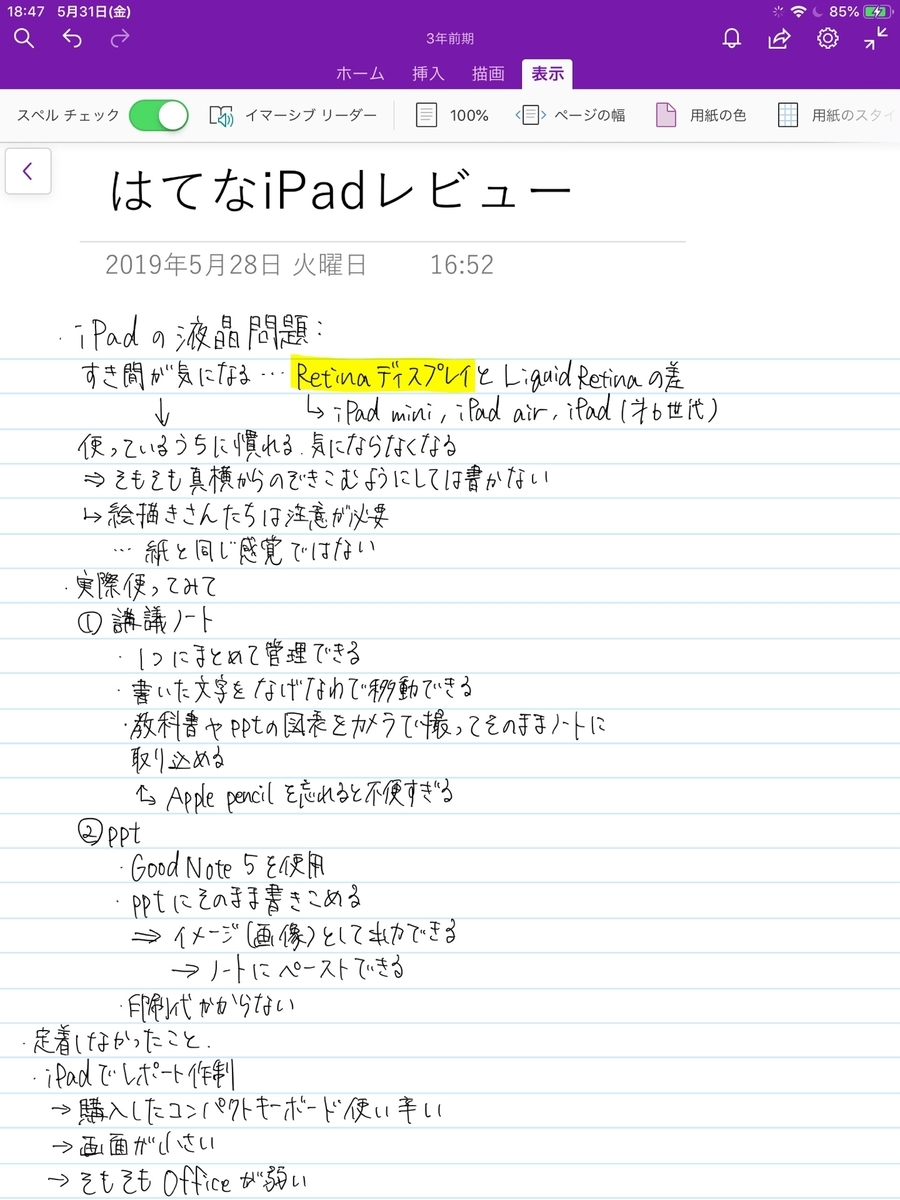 18:47 5月31日(金) 85%
3年前期
ホーム 挿入 描画 表示
スペル チェック イマーシブ リーダー 100% ページの幅 用紙の色 用紙のスタイ
はてなiPadレビュー
2019年5月28日 火曜日 16:52
・iPadの液晶問題:
すき間が気になる…Retinaディスプレイと Liquid Retinaの差
↓ ↳ iPad mini, iPad air, iPad (第6世代)
使っているうちに慣れる.気にならなくなる
⇒ そもそも真横からのぞきこむようにしては書かない
↳ 絵描きさんたちは注意が必要
… 紙と同じ感覚ではない
・実際使ってみて
① 講議ノート
・1つにまとめて管理できる
・書いた文字をなげなわで移動できる
・教科書やpptの図表をカメラで撮ってそのままノートに
取り込める
↳ Apple pencilを忘れると不便すぎる
② ppt
・Good Note 5を使用
・pptにそのまま書きこめる
⇒ イメージ(画像)として出力できる
→ ノートにペーストできる
・印刷代かからない
・定着しなかったこと.
・iPadでレポート作制
→ 購入したコンパクトキーボード使い辛い
→ 画面が小さい
→ そもそもOfficeが弱い